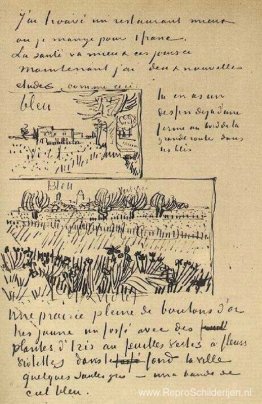 J'ai trouvé un restaurant mieux
où je mange pour 1 franc.
La santé va mieux ces jours ci
Maintenant j'ai deux nouvelles
études comme ceci
bleu
tu en as un
dessin déjà d'une
ferme au bord de la
grande route dans
les blés
Bleu
Une prairie pleine de boutons d'or
très jaune un fossé avec des
plantes d'iris au feuilles vertes à fleurs
violettes dans le fond la ville
quelques saules gris – une bande de
ciel bleu.
www.ReproSchilderijen.nl